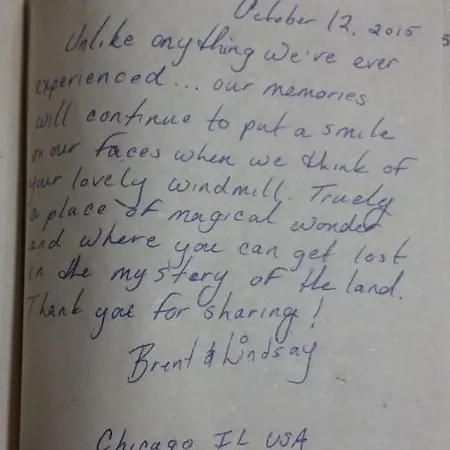 October 12, 2015
5
Unlike anything we've ever
experienced... our memories
will continue to put a smile
on our faces when we think of
your lovely windmill. Truely
a place of magical wonder
and where you can get lost
in the mystery of the land.
Thank you for sharing!
Brent & Lindsay
Chicago IL USA